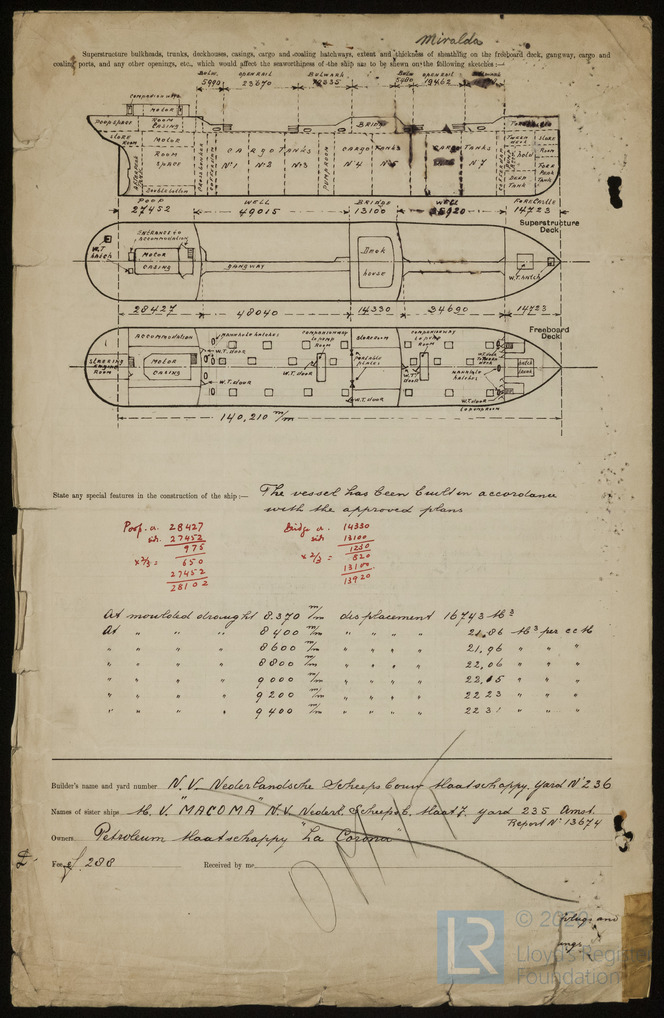 Miralda
Superstructure bulkheads, trunks, deckhouses, casings, cargo and coaling hatchways, extent and thickness of sheathing on the freeboard deck, gangway, cargo and
coaling ports, and any other openings, etc., which would affect the seaworthiness of the ship are to be shewn on the following sketches:—
Bulw. OPEN RAIL BULWARK Bulw OPEN RAIL
5990 23670
Companionway
MOTOR
POOP SPACE ROOM CASING BRIDGE
STORE ROOM MOTOR ROOM SPACE CARGO TANKS CARGO TANKS CARGO TANKS
Nº1 Nº2 Nº3 PUMPROOM Nº4 Nº5 Nº7
Double bottom DEEP TANK Fore Peak Tank
POOP WELL BRIDGE WELL FORECASTLE
27452 49015 13100 35920 14723
Superstructure
Deck
ENTRANCE to ACCOMMODATION
W.T. hatch MOTOR CASING GANGWAY Deck house W.T. hatch
28427 48040 14330 34690 14723
Freeboard
Deck
ACCOMMODATION MANHOLE hatches COMPANIONWAY to pump ROOM STOREROOM COMPANIONWAY to pump ROOM
STEERING ENGINE ROOM MOTOR CASING W.T. door W.T. door Portable plates W.T. door MANHOLE hatches hatch
W.T. door W.T. door W.T. door to pumproom
140,210 m/m
State any special features in the construction of the ship:— The vessel has been built in accordance
with the approved plans
Poop. a. 28427
sih. 27452
975
x 2/3 = 650
27452
28102
Bridge a. 14330
sih 13100
1230
x 2/3 = 820
13100
13920
At moulded draught 8.370 m/m displacement 16743 M³
At " " " 8400 m/m " " " " 21,86 M³ per cM
" " " " 8600 m/m " " " " 21,96 " " "
" " " " 8800 m/m " " " " 22,06 " " "
" " " " 9000 m/m " " " " 22,15 " " "
" " " " 9200 m/m " " " " 22 23 " " "
" " " " 9400 m/m " " " " 22 31 " " "
Builder's name and yard number N.V. Nederlandsche Scheepsbouw Maatschappy. Yard Nº 236
Names of sister ships M.V. "MACOMA" N.V. Nederl. Scheepsb. Maat7. yard 235 Amst.
Report Nº 13674
Owners Petroleum Maatschappy "La Corona"
Fee f. 288 Received by me
OMIT
plugs and
© 2020
LR
Lloyd's Register
Foundation